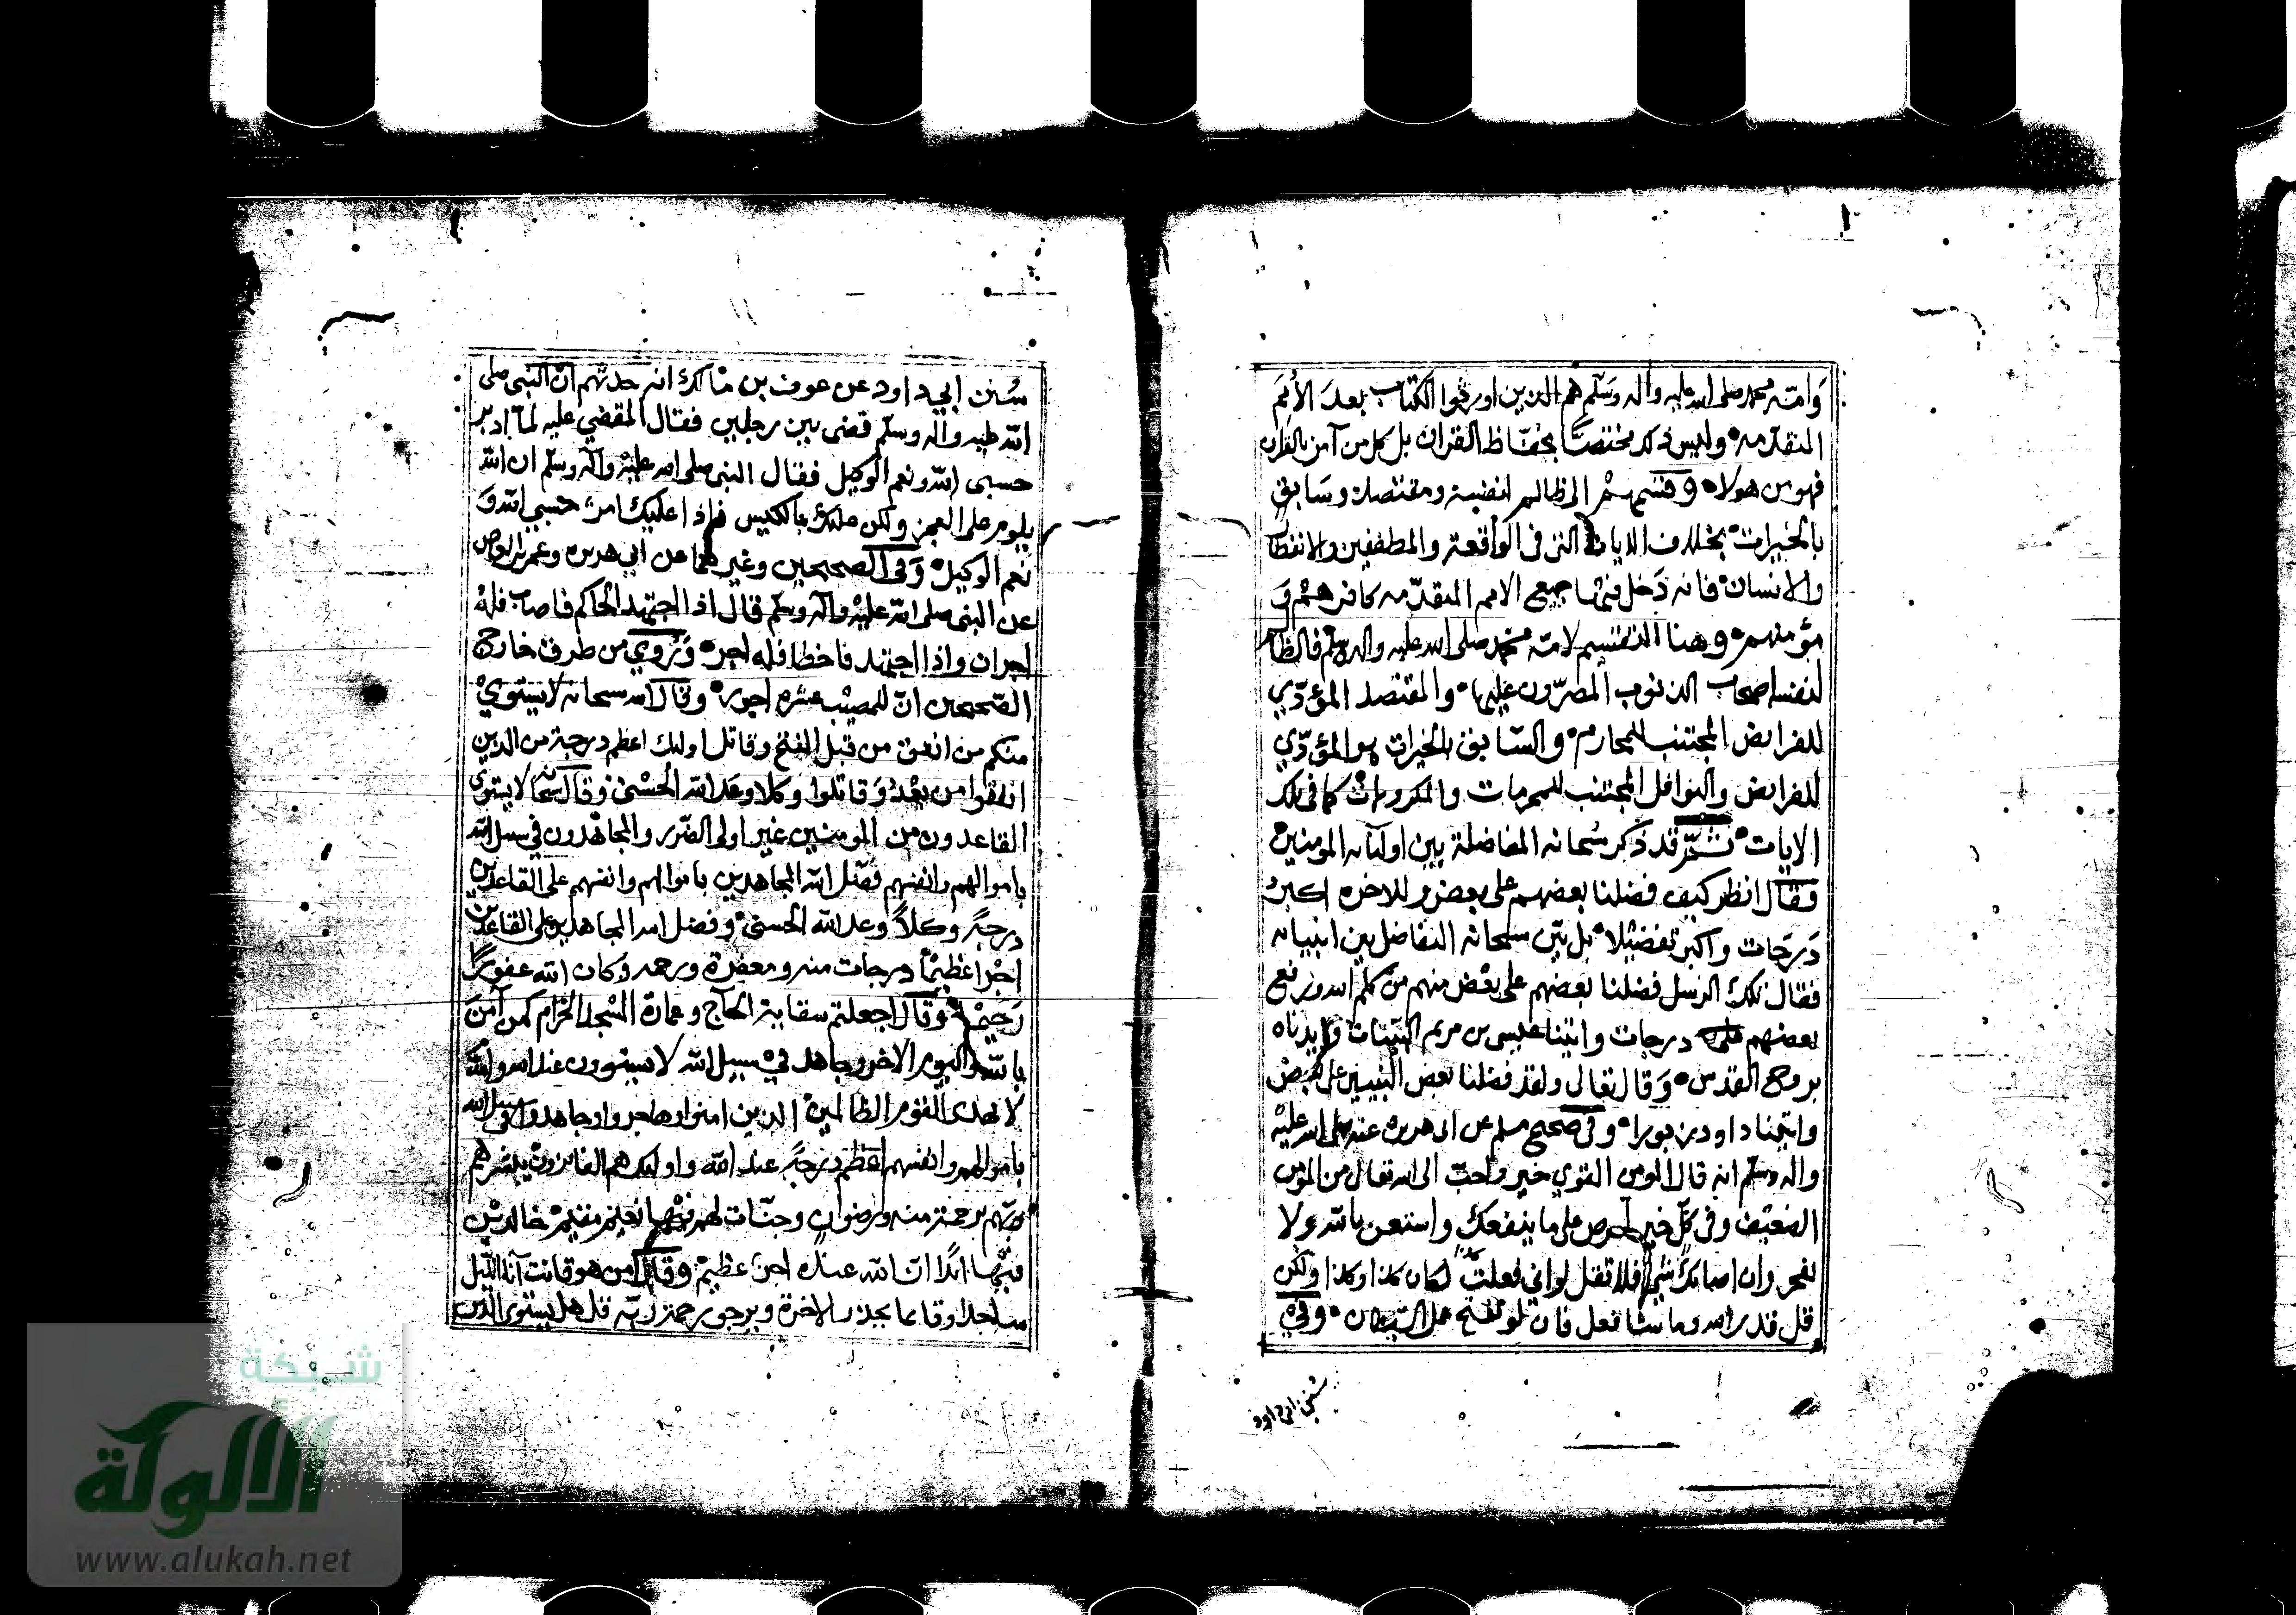 وَامته محمد صلى الله عليه وآله وسلم هم الذين اورثوا الكتاب بعدَ الأُمَمِ
المتقدّمه وليس ذلك مختصًّا بحُفّاظ القران بل كل من آمن بالقران
فهو من هولاء وقسّمهم الى ظالم لنفسه ومقتصد وسَابق
بالخيرات بخلاف الايات التى فى الواقعة والمطففين والانفطار
والانسان فانه دَخل فيها جميع الامم المتقدّمه كافرهم وَ
مؤمنهم وهذا التقسيم لامّة محمد صلى الله عليه واله وسلم فالظالم
لنفسه اصحاب الذنوب المصرّون عليها والمقتصد المؤدّي
للفرايض المجتنب للمحارم والسّابق بالخيرات هو المؤدّي
للفرايض والنوافل المجتنب للمحرمات والمكروهات كما فى تلك
الايات ثمّ قد ذكر سُبحانه المفاضلة بين اوليآئه المومنين
فقال انظر كيف فضلنا بعضهم على بعض وللاخره اكبر
دَرجَات واكبر تفضيلا بل بيّن سبحانه التفاضل بين انبيائه
فقال تلك الرسل فضلنا بعضهم على بعض منهم من كلم الله ورفع
بعضهم درجات واتينا عيسى بن مريم البيّنات وايدناه
بروح القدس وَقال تعالى ولقد فضلنا بعض النبيين على بعض
واتينا داود زبورا وفى صحيح مسلم عن ابى هريرة عنه صلى الله عليْه
واله وسلم انه قال المومن القوي خير واحبّ الى الله تعالى من المومن
الضعيف وفى كلّ خير احرص على ما ينفعك واستعن بالله ولا
تعجز وان اصابك شيْ فلا تقل لو انى فعلت كذا لكان كذا وكذا ولكن
قل قدر الله وما شا فعل فان لو تفتح عمل الشيطان وفي
سنن ابى داود
سُنن ابي داود عن عوف بن مالك انه حدثهم انّ النبى صلى
الله عليه واله وسلّم قضى بين رجلين فقال المقضي عليه لمّا ادبر
حسبى الله ونعم الوكيل فقال النبى صلى الله عليْه وآله وسلم ان الله
يلوم على العجز ولكن عليك بالكيس فاذا غلبك امرٌ حسبي الله وَ
نعم الوكيل وَفى الصحيحين وغيرهما عن ابي هريره وعمرو بن العاص
عن النبى صلى الله عليْه وآله وسلم قال اذا اجتهد الحاكم فاصاب فلهُ
اجران واذا اجتهد فاخطا فله اجر وَرُوي من طرق خارج
الصّحيحين انّ للمصيْب عشره اجور وقال الله سبحانه لا يستوي
منكم من انفق من قبل الفتح وقاتل اوليك اعظم درجة من الذين
انفقوا من بعْدُ وَقاتلوا وكلا وعَد الله الحُسْنى وقال سبحانه لا يستوى
القاعدون من المومنين غير اولى الضّرر والمجاهدون في سبيل الله
باموالهم وانفسهم فضّل الله المجاهدين باموالهم وانفسهم على القاعدين
درجةً وكلاًّ وعد الله الحسنى وفضل الله المجاهدين على القاعدين
اجْرا عظيمًا درجات منه ومغفرة ورحمه وكان الله غفورًا
رَحيمًا وقال اجعلتم سقاية الحآج وعمارة المسْجد الحَرام كمن آمنَ
بالله واليوم الاخر وجاهد فيْ سبيل الله لا يستوون عند الله والله
لا يهدى القوم الظالمين الذين امنوا وهاجروا وجاهدوا فى سبيل الله
باموالهم وانفسهم اعظم درجةً عند الله واوليك هم الفايزون يبشرهم
ربّهم برحمة منه ورضوان وجنّات لهم فيْها نعيْم مقيْم خالديْن
فيْها ابدًا انّ الله عنده اجرٌ عظيمْ وقال امن هو قانت آناء الليل
ساجدا وقايما يحذر الاخرة ويرجو رحمة ربّه قل هل يستوى الذين
شبكة
الألوكة
www.alukah.net